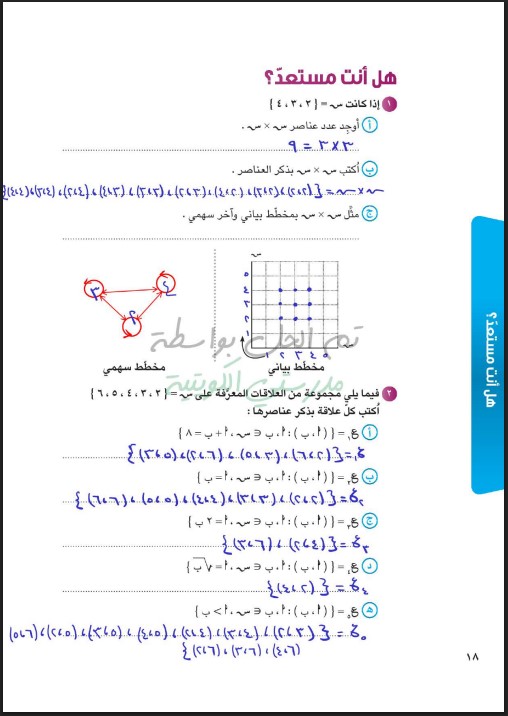 هل أنت مستعدّ؟
١ إذا كانت س = { ٢ ، ٣ ، ٤ }
أ أوجد عدد عناصر س × س .
٣ × ٣ = ٩
ب أكتب س × س بذكر العناصر .
س × س = { (٢،٢) ، (٣،٢) ، (٤،٢) ، (٢،٣) ، (٣،٣) ، (٤،٣) ، (٢،٤) ، (٣،٤) ، (٤،٤) }
ج مثّل س × س بمخطّط بياني وآخر سهمي .
س
٥
٤
٣
٢
١
١ ٢ ٣ ٤ ٥ س
٣ ٤
٢
تم الحل بواسطة
مخطّط بياني مخطّط سهمي
مدرستي الكويتية
٢ فيما يلي مجموعة من العلاقات المعرّفة على س = { ٢ ، ٣ ، ٤ ، ٥ ، ٦ }
أكتب كلّ علاقة بذكر عناصرها :
أ ع١ = { ( أ ، ب ) : أ ، ب ∈ س ، أ + ب = ٨ }
ع١ = { (٢،٦) ، (٣،٥) ، (٦،٢) ، (٥،٣) }
ب ع٢ = { ( أ ، ب ) : أ ، ب ∈ س ، أ = ب }
ع٢ = { (٢،٢) ، (٣،٣) ، (٤،٤) ، (٥،٥) ، (٦،٦) }
ج ع٣ = { ( أ ، ب ) : أ ، ب ∈ س ، أ = ٢ ب }
ع٣ = { (٤،٢) ، (٦،٣) }
د ع٤ = { ( أ ، ب ) : أ ، ب ∈ س ، أ = √ب }
ع٤ = { (٢،٤) }
هـ ع٥ = { ( أ ، ب ) : أ ، ب ∈ س ، أ > ب }
ع٥ = { (٣،٢) ، (٤،٣) ، (٤،٢) ، (٥،٤) ، (٥،٣) ، (٥،٢) ، (٦،٥)
(٦،٤) ، (٦،٣) ، (٦،٢) }
هل أنت مستعدّ؟
١٨